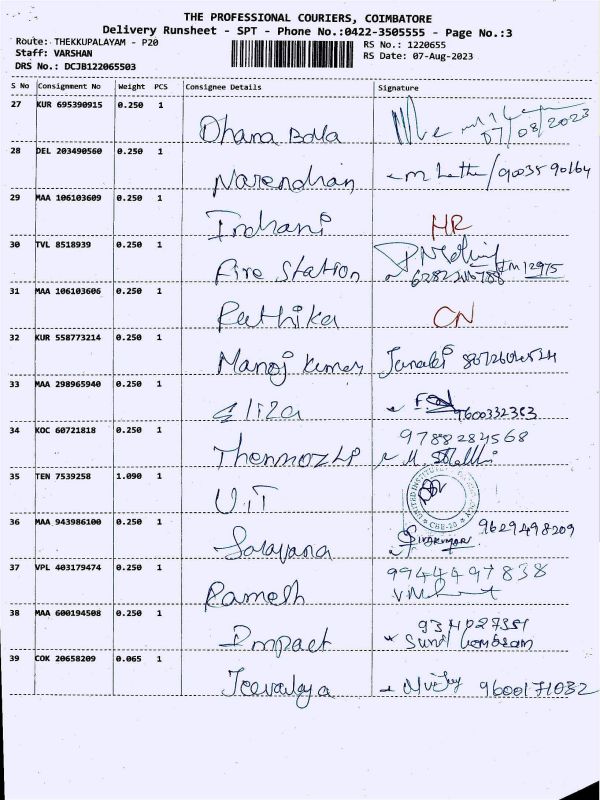 THE PROFESSIONAL COURIERS, COIMBATORE
Delivery Runsheet - SPT - Phone No.:0422-3505555 - Page No.:3
Route: THEKKUPALAYAM - P20
Staff: VARSHAN
DRS No.: DCJB122065503
RS No.: 1220655
RS Date: 07-Aug-2023
S No Consignment No Weight PCS Consignee Details Signature
27 KUR 695390915 0.250 1 Dhana 07/08/2023
28 DEL 203490560 0.250 1 Narendhan
29 MAA 106103609 0.250 1 Indhani HR
30 TVL 8518939 0.250 1 Fire Station
31 MAA 106103606 0.250 1 Rathika CN
32 KUR 558773214 0.250 1 Manoj Kumar Janaki
33 MAA 298965940 0.250 1 Eliza 9600332383
34 KOC 60721818 0.250 1 Thenmozhi 9788284568
35 TEN 7539258 1.090 1 U.i.T UNITED INSTITUTE CBE-20
36 MAA 943986100 0.250 1 Saravana Sivakumar 9629498209
37 VPL 403179474 0.250 1 Ramesh 9944497838
38 MAA 600194508 0.250 1 Impact
39 COK 20658209 0.065 1 Jeevalaya 9600171032